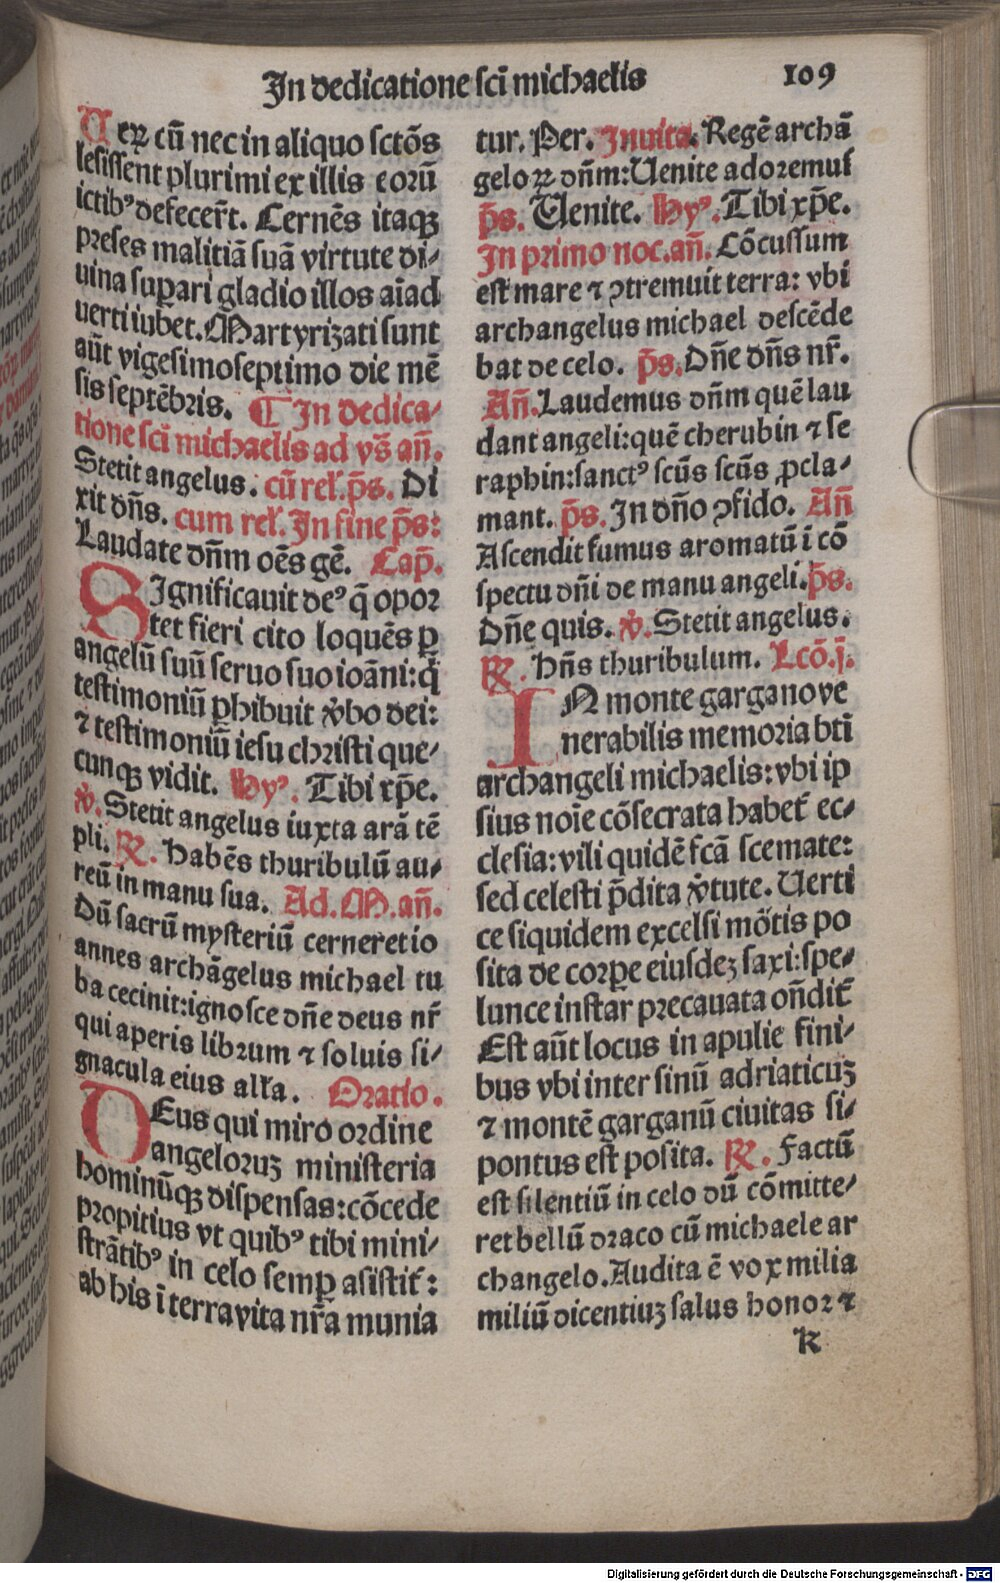 In dedicatione sci michaelis 109
Uerꝝ cũ nec in aliquo sctõs
lesissent plurimi ex illis eorũ
ictibꝰ defecer̃t. Cernẽs itaqꝫ
preses malitiã suã virtute di⸗
uina suꝑari gladio illos aĩad
uerti iubet. Martyrizati sunt
aũt vigesimoseptimo die mẽ
sis septẽbris. ¶ In dedica⸗
tione sci michaelis ad vs̃ añ.
Stetit angelus. cũ rel'. p̃s. Di
xit dñs. cum rel'. In fine p̃s:
Laudate dñm oẽs gẽ. Cap̃.
SIgnificauit deꝰ q̃ opor
tet fieri cito loquẽs ꝑ
angelũ suũ seruo suo ioãni: q̃
testimoniũ ꝑhibuit v̾bo dei:
⁊ testimoniũ iesu christi que⸗
cunqꝫ vidit. Hyꝰ. Tibi xp̃e.
℣. Stetit angelus iuxta arã tẽ
pli. ℞. Habẽs thuribulũ au⸗
reũ in manu sua. Ad. M. añ.
Dũ sacrũ mysteriũ cerneret io
annes archãgelus michael tu
ba cecinit: ignosce dñe deus nr̃
qui aperis librum ⁊ soluis si⸗
gnacula eius all'a. Oratio.
DEus qui miro ordine
angeloruꝫ ministeria
hominũqꝫ dispensas: cõcede
propitius vt quibꝰ tibi mini⸗
strãtibꝰ in celo semꝑ asistit̃:
ab his ĩ terra vita nr̃a munia
tur. Per. Inuita. Regẽ archã
geloꝝ dñm: Uenite adoremus
p̃s. Uenite. Hyꝰ. Tibi xp̃e.
In primo noc. añ. Cõcussum
est mare ⁊ ꝯtremuit terra: vbi
archangelus michael descẽde
bat de celo. p̃s. Dñe dñs nr̃.
Añ. Laudemus dñm quẽ lau
dant angeli: quẽ cherubin ⁊ se
raphin: sanctꝰ scũs scũs ꝓcla⸗
mant. p̃s. In dño ꝯfido. Añ
Ascendit fumus aromatũ ĩ cõ
spectu dñi de manu angeli. p̃s.
Dñe quis. ℣. Stetit angelus.
℞. Hñs thuribulum. Lcõ. j.
IN monte gargano ve
nerabilis memoria bti
archangeli michaelis: vbi ip
sius noĩe cõsecrata habet̃ ec⸗
clesia: vili quidẽ fcã scemate:
sed celesti p̃dita v̾tute. Uerti
ce siquidem excelsi mõtis po
sita de corꝑe eiusdeꝫ saxi: spe⸗
lunce instar precauata oñdit̃
Est aũt locus in apulie fini⸗
bus vbi inter sinũ adriaticuꝫ
⁊ montẽ garganũ ciuitas si⸗
pontus est posita. ℞. Factũ
est silentiũ in celo dũ cõmitte⸗
ret bellũ draco cũ michaele ar
changelo. Audita ẽ vox milia
miliũ dicentiuꝫ salus honor ⁊
k
Digitalisierung gefördert durch die Deutsche Forschungsgemeinschaft - DFG